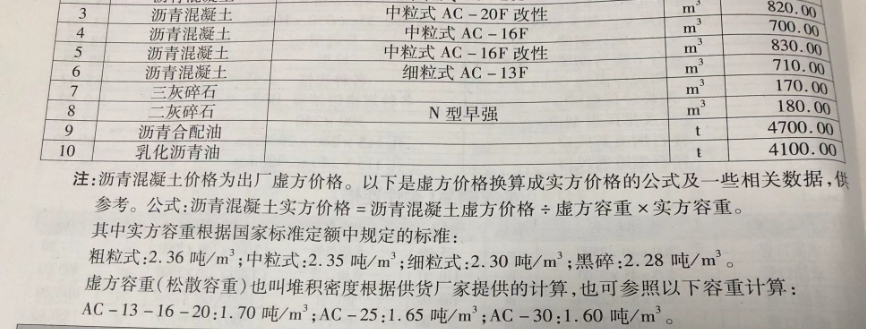 3 沥青混凝土 中粒式 AC－20F 改性 m³ 820.00
4 沥青混凝土 中粒式 AC－16F m³ 700.00
5 沥青混凝土 中粒式 AC－16F 改性 m³ 830.00
6 沥青混凝土 细粒式 AC－13F m³ 710.00
7 三灰碎石 m³ 170.00
8 二灰碎石 N 型早强 m³ 180.00
9 沥青合配油 t 4700.00
10 乳化沥青油 t 4100.00
注:沥青混凝土价格为出厂虚方价格。以下是虚方价格换算成实方价格的公式及一些相关数据,供
参考。公式:沥青混凝土实方价格=沥青混凝土虚方价格÷虚方容重×实方容重。
其中实方容重根据国家标准定额中规定的标准:
粗粒式:2.36 吨/m³;中粒式:2.35 吨/m³;细粒式:2.30 吨/m³;黑碎:2.28 吨/m³。
虚方容重(松散容重)也叫堆积密度根据供货厂家提供的计算,也可参照以下容重计算:
AC－13－16－20:1.70 吨/m³;AC－25:1.65 吨/m³;AC－30:1.60 吨/m³。